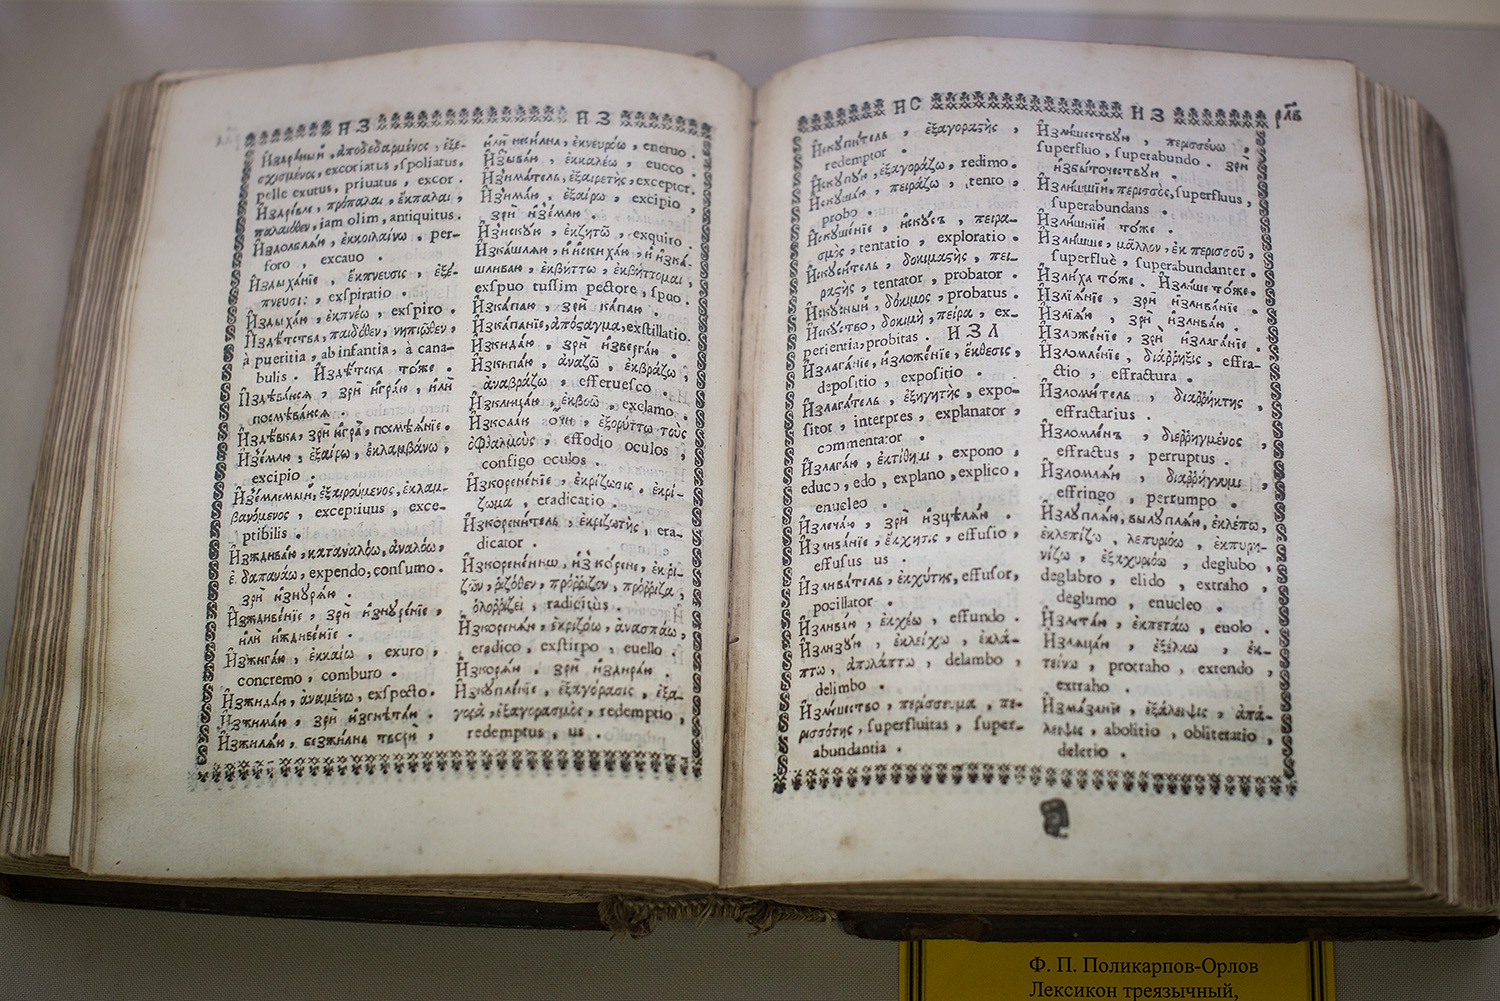 ИЗ
ИЗ
Издра́ный, ἀποδεδαρμένος, ἐξε-
σχισμένος, excoriatus, spoliatus,
pelle exutus, priuatus, excor.
И҆здре́вле, πρόπαλαι, ἔκπαλαι,
παλαιόθεν, iam olim, antiquitus.
Издолблѧ́ю, ἐκκοιλαίνω, per-
foro, excauo.
И҆здыха́нїе, ἔκπνευσις, ἐξέ-
πνευσις, exspiratio.
И҆здыха́ю, ἐκπνέω, exspiro.
И҆здѣ́тства, παιδόθεν, νηπιόθεν,
à pueritia, ab infantia, à cana-
bulis. И҆здѣ́тска то́же.
И҆здѣва́юсѧ, зрѝ и҆гра́ю, и҆лѝ
посмѣва́юсѧ.
И҆здѣ́вка, зрѝ и҆гра̀, посмѣѧ́нїе.
И҆зе́млю, ἐξαίρω, ἐκλαμβάνω,
excipio.
И҆зе́млемый, ἐξαιρούμενος, ἐκλαμ-
βανόμενος, exceptiuus, exce-
ptibilis.
И҆ждива́ю, καταναλόω, ἀναλόω,
ἐ δαπανάω, expendo, consumo.
зрѝ и҆знурѧ́ю.
И҆ждиве́нїе, зрѝ и҆знуре́нїе,
и҆лѝ и҆ждиве́нїе.
И҆зжига́ю, ἐκκαίω, exuro,
concremo, comburo.
И҆зжида́ю, ἀναμένω, exspecto.
И҆зжима́ю, зрѝ и҆згнѣта́ю.
И҆зжилѧ́ю, безжи́лна творю̀,
и҆лѝ нежи́лна, ἐκνευρόω, eneruo.
И҆зыва́ю, ἐκκαλέω, euoco.
И҆зима́тель, ἐξαιρετής, exceptor.
И҆зима́ю, ἐξαίρω, excipio,
зрѝ и҆зе́млю.
И҆зиску́ю, ἐκζητῶ, exquiro.
И҆зка́шлѧю, и҆ и҆схи́каю, и҆ и҆зка́-
шливаю, ἐκβήττω, ἐκβήττομαι,
exspuo tussim pectore, spuo.
И҆зка́паю, зрѝ ка́паю.
И҆зка́панїе, ἀπόσαγμα, exstillatio.
И҆зкида́ю, зрѝ и҆зверга́ю.
И҆зкипа́ю, ἀναζῶ, ἐκβράζω,
ἀναβράζω, efferuesco.
И҆зклица́ю, ἐκβοῶ, exclamo.
И҆зкола́ю о҆чи, ἐξορύττω τοὺς
ὀφθαλμοὺς, effodio oculos,
configo oculos.
И҆зкорене́нїе, ἐκρίζωσις, ἐκρί-
ζωμα, eradicatio.
И҆зкорени́тель, ἐκριζωτής, era-
dicator.
И҆зкоре́ненно, и҆з̾ ко́рене, ἐκρι-
ζῶν, ῥιζόθεν, πρόῤῥιζον, πρόῤῥιζα,
ὁλοῤῥιζεὶ, radicitùs.
И҆зкоренѧ́ю, ἐκριζόω, ἀνασπάω,
eradico, exstirpo, euello.
И҆зкорѧ́ю. зрѝ и҆здира́ю.
И҆зкупле́нїе, ἐξαγόρασις, ἐξα-
γορὰ, ἐξαγορασμὸς, redemptio,
redemptus, us.
ИС
ИЗ
рлв
И҆скупи́тель, ἐξαγοραστὴς,
redemptor.
И҆скупу́ю, ἐξαγοράζω, redimo.
И҆скуша́ю, πειράζω, tento,
probo.
И҆скуше́нїе, и҆ску́съ, πειρα-
σμὸς, tentatio, exploratio.
И҆скуси́тель, δοκιμαστὴς, πει-
ραστὴς, tentator, probator.
И҆ску́сный, δόκιμος, probatus.
И҆ску́ство, δοκιμὴ, πεῖρα, ex-
perientia, probitas. ИЗЛ
И҆злага́нїе, и҆зложе́нїе, ἔκθεσις,
depositio, expositio.
И҆злага́тель, ἐξηγητὴς, expo-
sitor, interpres, explanator,
commentator.
И҆злага́ю, ἐκτίθημι, expono,
educo, edo, explano, explico,
enucleo.
И҆злеча́ю, зрѝ и҆сцѣлѧ́ю.
И҆злива́нїе, ἔκχυσις, effusio,
effusus us.
И҆злива́тель, ἐκχύτης, effusor,
pocillator.
И҆злива́ю, ἐκχέω, effundo.
И҆злизу́ю, ἐκλείχω, ἐκλά-
πτω, ἀπολάπτω, delambo,
delimbo.
И҆зли́шество, περίσσευμα, πε-
ρισσότης, superfluitas, super-
abundantia.
И҆зли́шествую, περισσεύω,
superfluo, superabundo. зрѝ
и҆збы́точествую.
И҆зли́шшїй, περισσὸς, superfluus,
superabundans
И҆зли́шнїй то́же.
И҆зли́шше, μᾶλλον, ἐκ περισσοῦ,
superfluè, superabundanter.
И҆зли́ха то́же. И҆зли́ше то́же.
И҆злїѧ́нїе, зрѝ и҆злива́нїе.
И҆злїѧ́ю, зрѝ и҆злива́ю.
И҆зложе́нїе, зрѝ и҆злага́нїе.
И҆зломле́нїе, διάῤῥηξις, effra-
ctio, effractura.
И҆зломи́тель, διαῤῥήκτης,
effractarius.
И҆зломле́нъ, διεῤῥηγμένος,
effractus, perruptus.
И҆зломлѧ́ю, διαῤῥήγνυμι,
effringo, perrumpo.
И҆злуплѧ́ю, вылуплѧ́ю, ἐκλέπω,
ἐκλεπίζω, λεπυριόω, ἐκπυρη-
νίζω, ἐξαχυριόω, deglubo,
deglabro, elido, extraho,
deglumo, enucleo.
И҆злета́ю, ἐκπετάω, euolo.
И҆злѧца́ю, ἐξέλκω, ἐκ-
τείνω, protraho, extendo,
extraho.
И҆зма́занїе, ἐξάλειψις, ἀπά-
λειψις, abolitio, obliteratio,
deletio.
Ф. П. Поликарпов-Орлов
Лексикон треязычный,